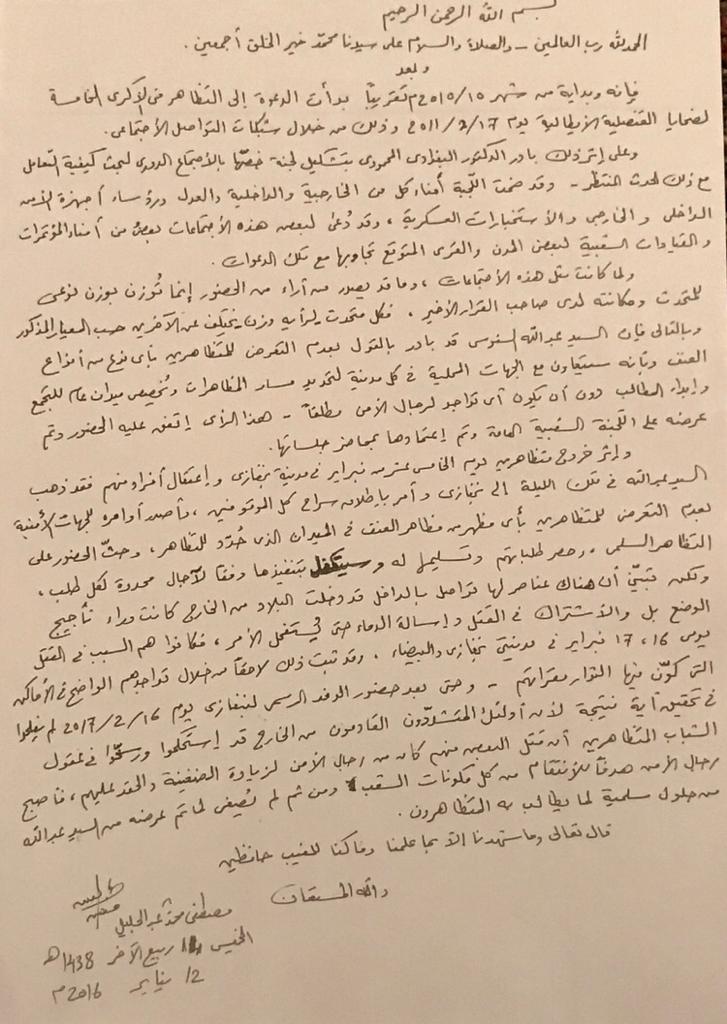 بسم الله الرحمن الرحيم
الحمد لله رب العالمين - والصلاة والسلام على سيدنا محمد خير الخلق أجمعين .
وبعد
فإنه وبداية من شهر 2010/10م تقريباً بدأت الدعوة إلى التظاهر في الذكرى الخامسة
لضحايا القنصلية الإيطالية يوم 2011/2/17 وذلك من خلال شبكات التواصل الاجتماعي .
وعلى إثر ذلك بادر الدكتور البغدادي المحمودي بتشكيل لجنة خصّها بالاجتماع الدوري لبحث كيفية التعامل
مع ذلك الحدث المنتظر - وقد ضمت اللجنة أمناء كل من الخارجية والداخلية والعدل ورؤساء أجهزة الأمن
الداخلي والخارجي والاستخبارات العسكرية ، وقد دُعي لبعض هذه الاجتماعات بعضٌ من أمناء المؤتمرات
والقيادات الشعبية لبعض المدن والقرى المتوقع تجاوبها مع تلك الدعوات .
ولما كانت مثل هذه الاجتماعات ، وما قد يصدر من آراء من الحضور إنما تُوزن بوزن نوعي
للمتحدث ومكانته لدى صاحب القرار الأخير . فكل متحدث لرأيه وزن يختلف عن الآخرين حسب المعيار المذكور
وبالتالي فإن السيد عبدالله السنوسي قد بادر بالقول بعدم التعرض للمتظاهرين بأي نوع من أنواع
العنف وبأنه سيتعاون مع الجهات المحلية في كل مدينة لتحديد مسار المظاهرات وتخصيص ميدان عام للتجمع
وإبداء المطالب دون أن يكون أي تواجد لرجال الأمن مطلقاً - هذا الرأي اتفق عليه الحضور وتم
عرضه على اللجنة الشعبية العامة وتم إعتمادها بمحاضر جلساتها .
وإثر خروج متظاهرين يوم الخامس عشر من فبراير في مدينة بنغازي وإعتقال أفراد منهم فقد ذهب
السيد عبدالله في تلك الليلة إلى بنغازي وأمر بإطلاق سراح كل الموقوفين ، وأصدر أوامره للجهات الأمنية
بعدم التعرض للمتظاهرين بأي مظهر من مظاهر العنف في الميدان الذي حُدد للتظاهر ، وحثّ الحضور على
التظاهر السلمي ، وحصر طلباتهم وتسليمها له وسيتكفل بتنفيذها وفقاً لآجال محددة لكل طلب ،
ولكن تبيّن أن هناك عناصر لها تواصل بالداخل قد دخلت البلاد من الخارج كانت وراء تأجيج
الوضع بل والاشتراك في القتل وإسالة الدماء حتى يستفحل الأمر ، فكانوا هم السبب في القتل
يومي 16، 17 فبراير في مدينتي بنغازي والبيضاء . وقد ثبت ذلك لاحقاً من خلال تواجدهم الواضح في الأماكن
التي كوّن فيها الثوار مقراتهم - وحتى بعد حضور الوفد الرسمي لبنغازي يوم 2017/2/16 لم يفلحوا
في تحقيق أية نتيجة لأن أولئك المتشدّدون القادمون من الخارج قد إستحكموا ورسخّوا في عقول
الشباب المتظاهرين أن مقتل البعض منهم كان من رجال الأمن لزيادة الضغينة والحقد عليهم ، فأصبح
رجال الأمن هدفاً للانتقام من كل مكونات الشعب ومن ثم لم يُصغى لما تم عرضه من السيد عبدالله
من حلول سلمية لما يطالب به المتظاهرون .
قال تعالى وما شهدنا إلا بما علمنا وما كنا للغيب حافظين
والله المستعان
مصطفى محمد عبدالجليل
الخميس 14 ربيع الآخر 1438هـ
12 يناير 2016م